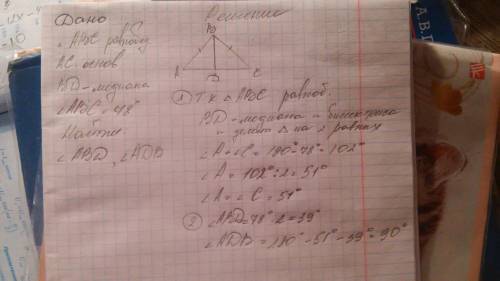 Дано
△ABC равноб
AC основ
BD - медиана
∠ABC = 78°
Найти
∠ABD, ∠ADB
Решение
B
A D C
① Т.к △ABC равноб.
BD - медиана и биссектриса
и делит △ на 2 равных
∠A + ∠C = 180° - 78° = 102°
∠A = 102° : 2 = 51°
∠A = ∠C = 51°
② ∠ABD = 78° : 2 = 39°
∠ADB = 180° - 51° - 39° = 90°
А.В.П